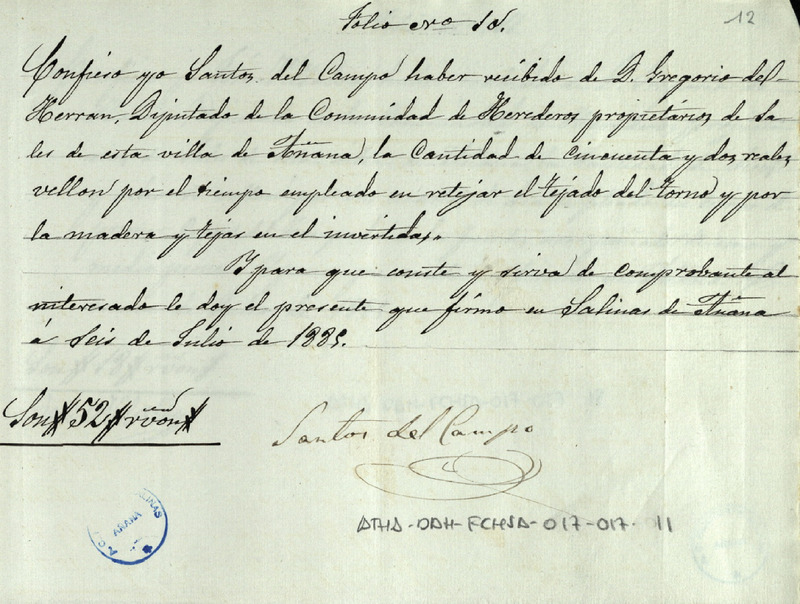 Folio nro 10.
12
Confieso yo Santos del Campo haber recibido de D. Gregorio del
Herran, Diputado de la Comunidad de Herederos propietarios de Sa-
les de esta villa de Añana, la cantidad de cincuenta y dos reales
vellon por el tiempo empleado en retejar el tejado del torno y por
la madera y tejas en el invertidas.
Y para que conste y sirva de comprobante al
interesado le doy el presente que firmo en Salinas de Añana
á seis de Julio de 1885.
Son # 52 # rs von #
Santos del Campo
SALINAS
AÑANA
ATHA-DAH-FCHSA-017-017-011